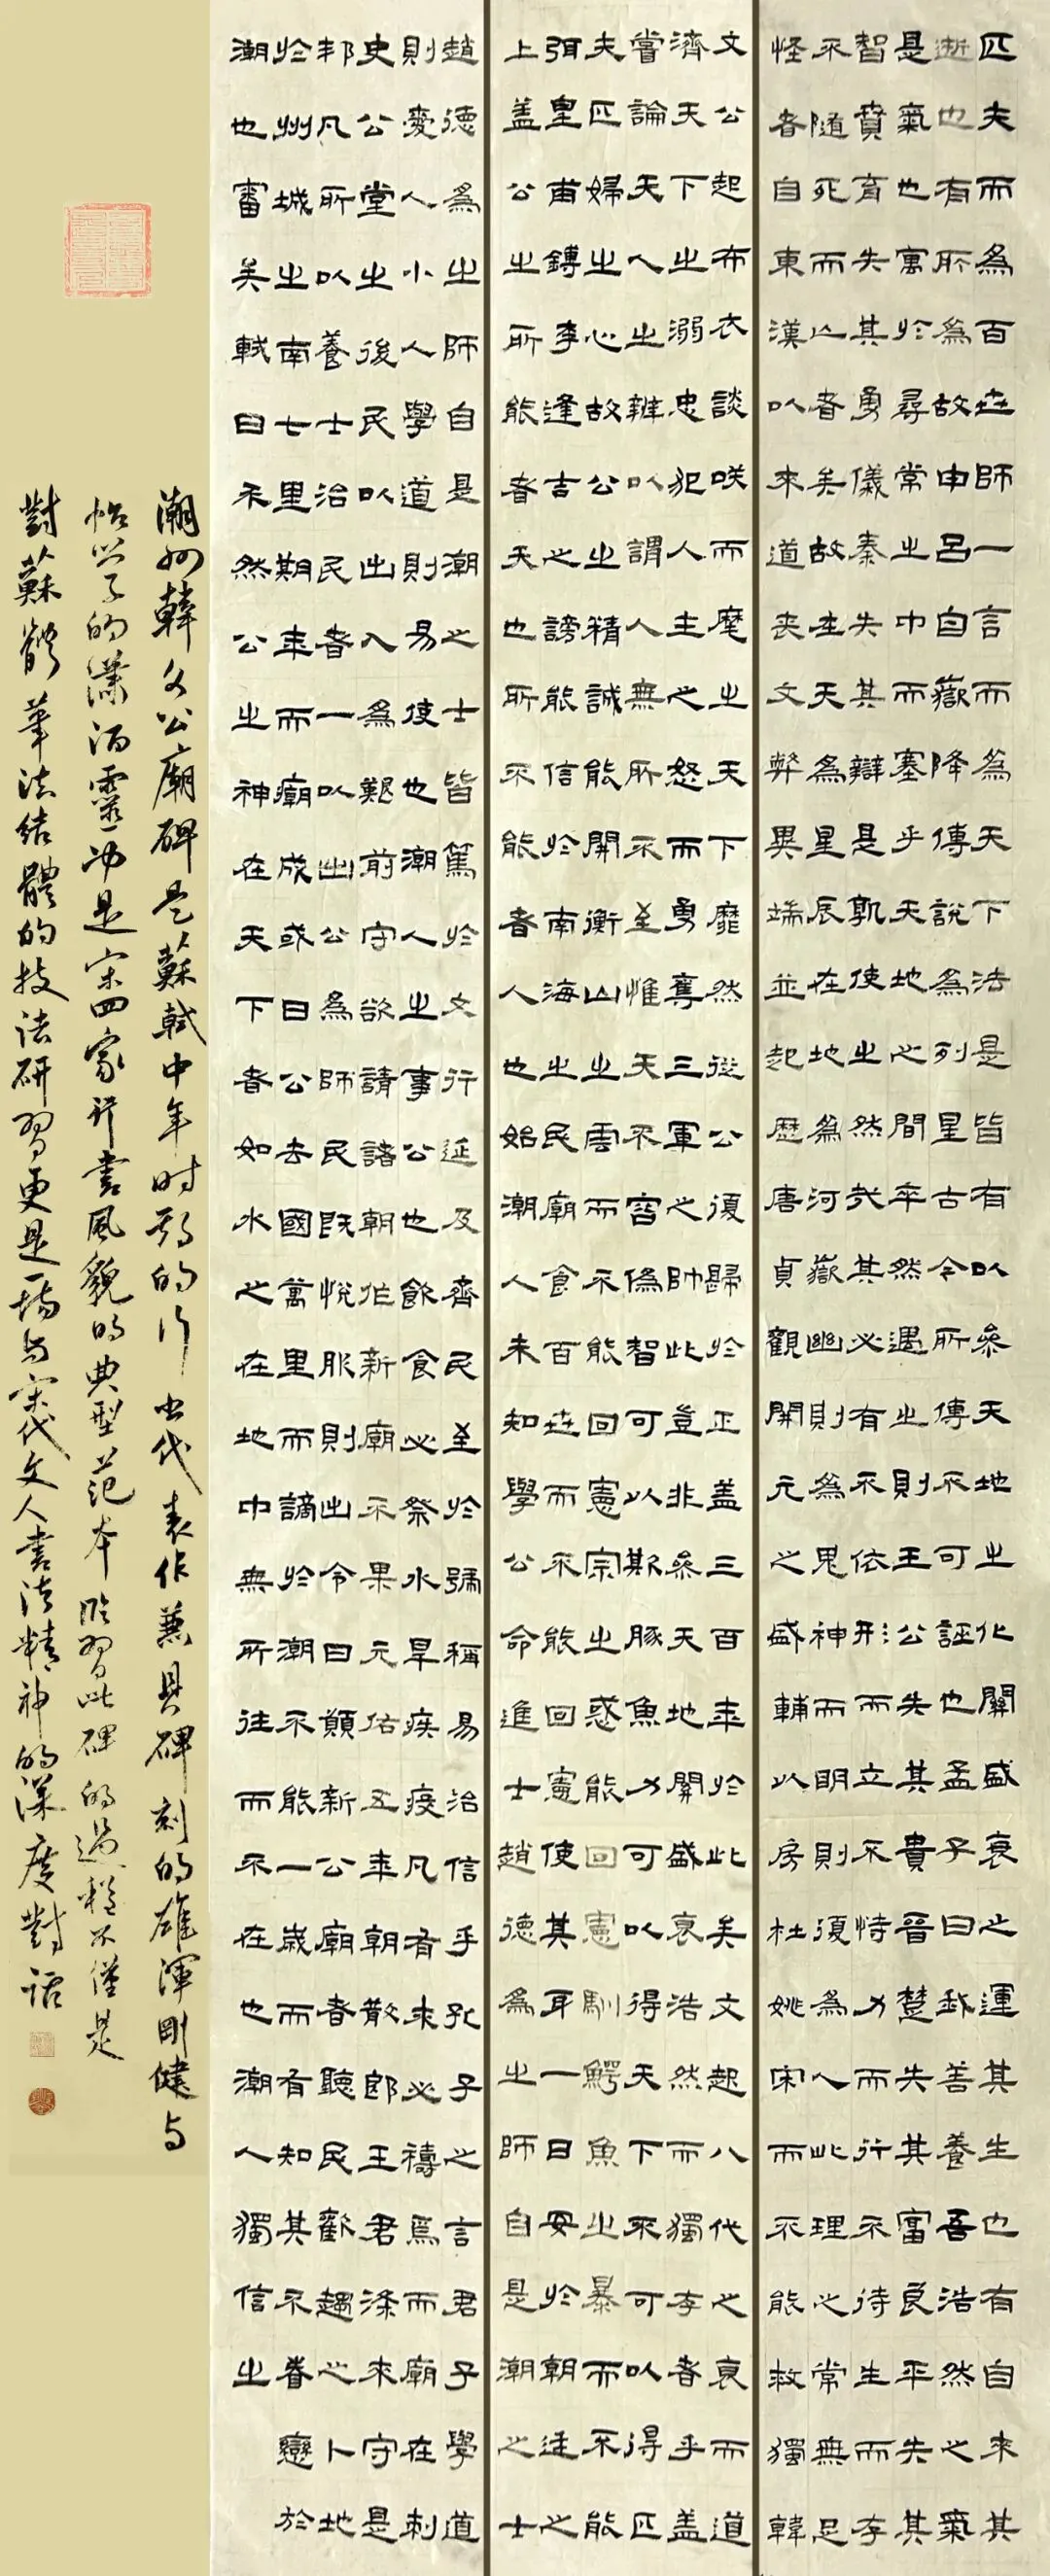 匹夫而為百世師一言而為天下法是皆有以參天地之化關盛衰之運其生也有自來其
逝也有所為故申呂自嶽降傳說為列星古今所傳不可誣也孟子曰我善養吾浩然之氣
是氣也寓於尋常之中而塞乎天地之間卒然遇之則王公失其貴晉楚失其富良平失其
智賁育失其勇儀秦失其辯是孰使之然哉其必有不依形而立不恃力而行不待生而存
不隨死而亡者矣故在天為星辰在地為河嶽幽則為鬼神而明則復為人此理之常無足
怪者自東漢以來道喪文弊異端並起歷唐貞觀開元之盛輔以房杜姚宋而不能救獨韓
文公起布衣談咲而麾之天下靡然從公復歸於正蓋三百年於此矣文起八代之衰而道
濟天下之溺忠犯人主之怒而勇奪三軍之帥此豈非參天地關盛衰浩然而獨存者乎蓋
嘗論天人之辨以謂人無所不至惟天不容偽智可以斯豚魚力可以得天下不可以得匹
夫匹婦之心故公之精誠能開衡山之雲而不能回憲宗之惑能回憲馴鱷魚之暴而不能
弭皇甫鎛李逢吉之謗能信於南海之民廟食百世而不能回憲使其耳一日安於朝廷之
上蓋公之所能者天也所不能者人也始潮人未知學公命進士趙德為之師自是潮之士
趙德為之師自是潮之士皆篤於文行延及齊民至於號稱易治信乎孔子之言君子學道
則愛人小人學道則易使也潮人之事公也飲食必祭水旱疾疫凡有求必禱焉而廟在刺
史公堂之後民以出入為艱前守欲請諸朝作新廟不果元佑五年朝散郎王君滌來守是
邦凡所以養士治民者一以出公為師民既悅服則出令曰願新公廟者聽民歡趨之卜地
於州城之南七里期年而廟成或曰公去國萬里而謫於潮不能一歲而有知其不眷戀於
潮也審矣軾曰不然公之神在天下者如水之在地中無所往而不在也潮人獨信之
潮州韓文公廟碑是蘇軾中年时期的行书代表作兼具碑刻的雄渾剛健与
帖学的瀟洒靈动是宋四家行書風貌的典型范本临習此碑的過程不僅是
對蘇體筆法結體的技法研習更是一場与宋代文人書法精神的深度對話